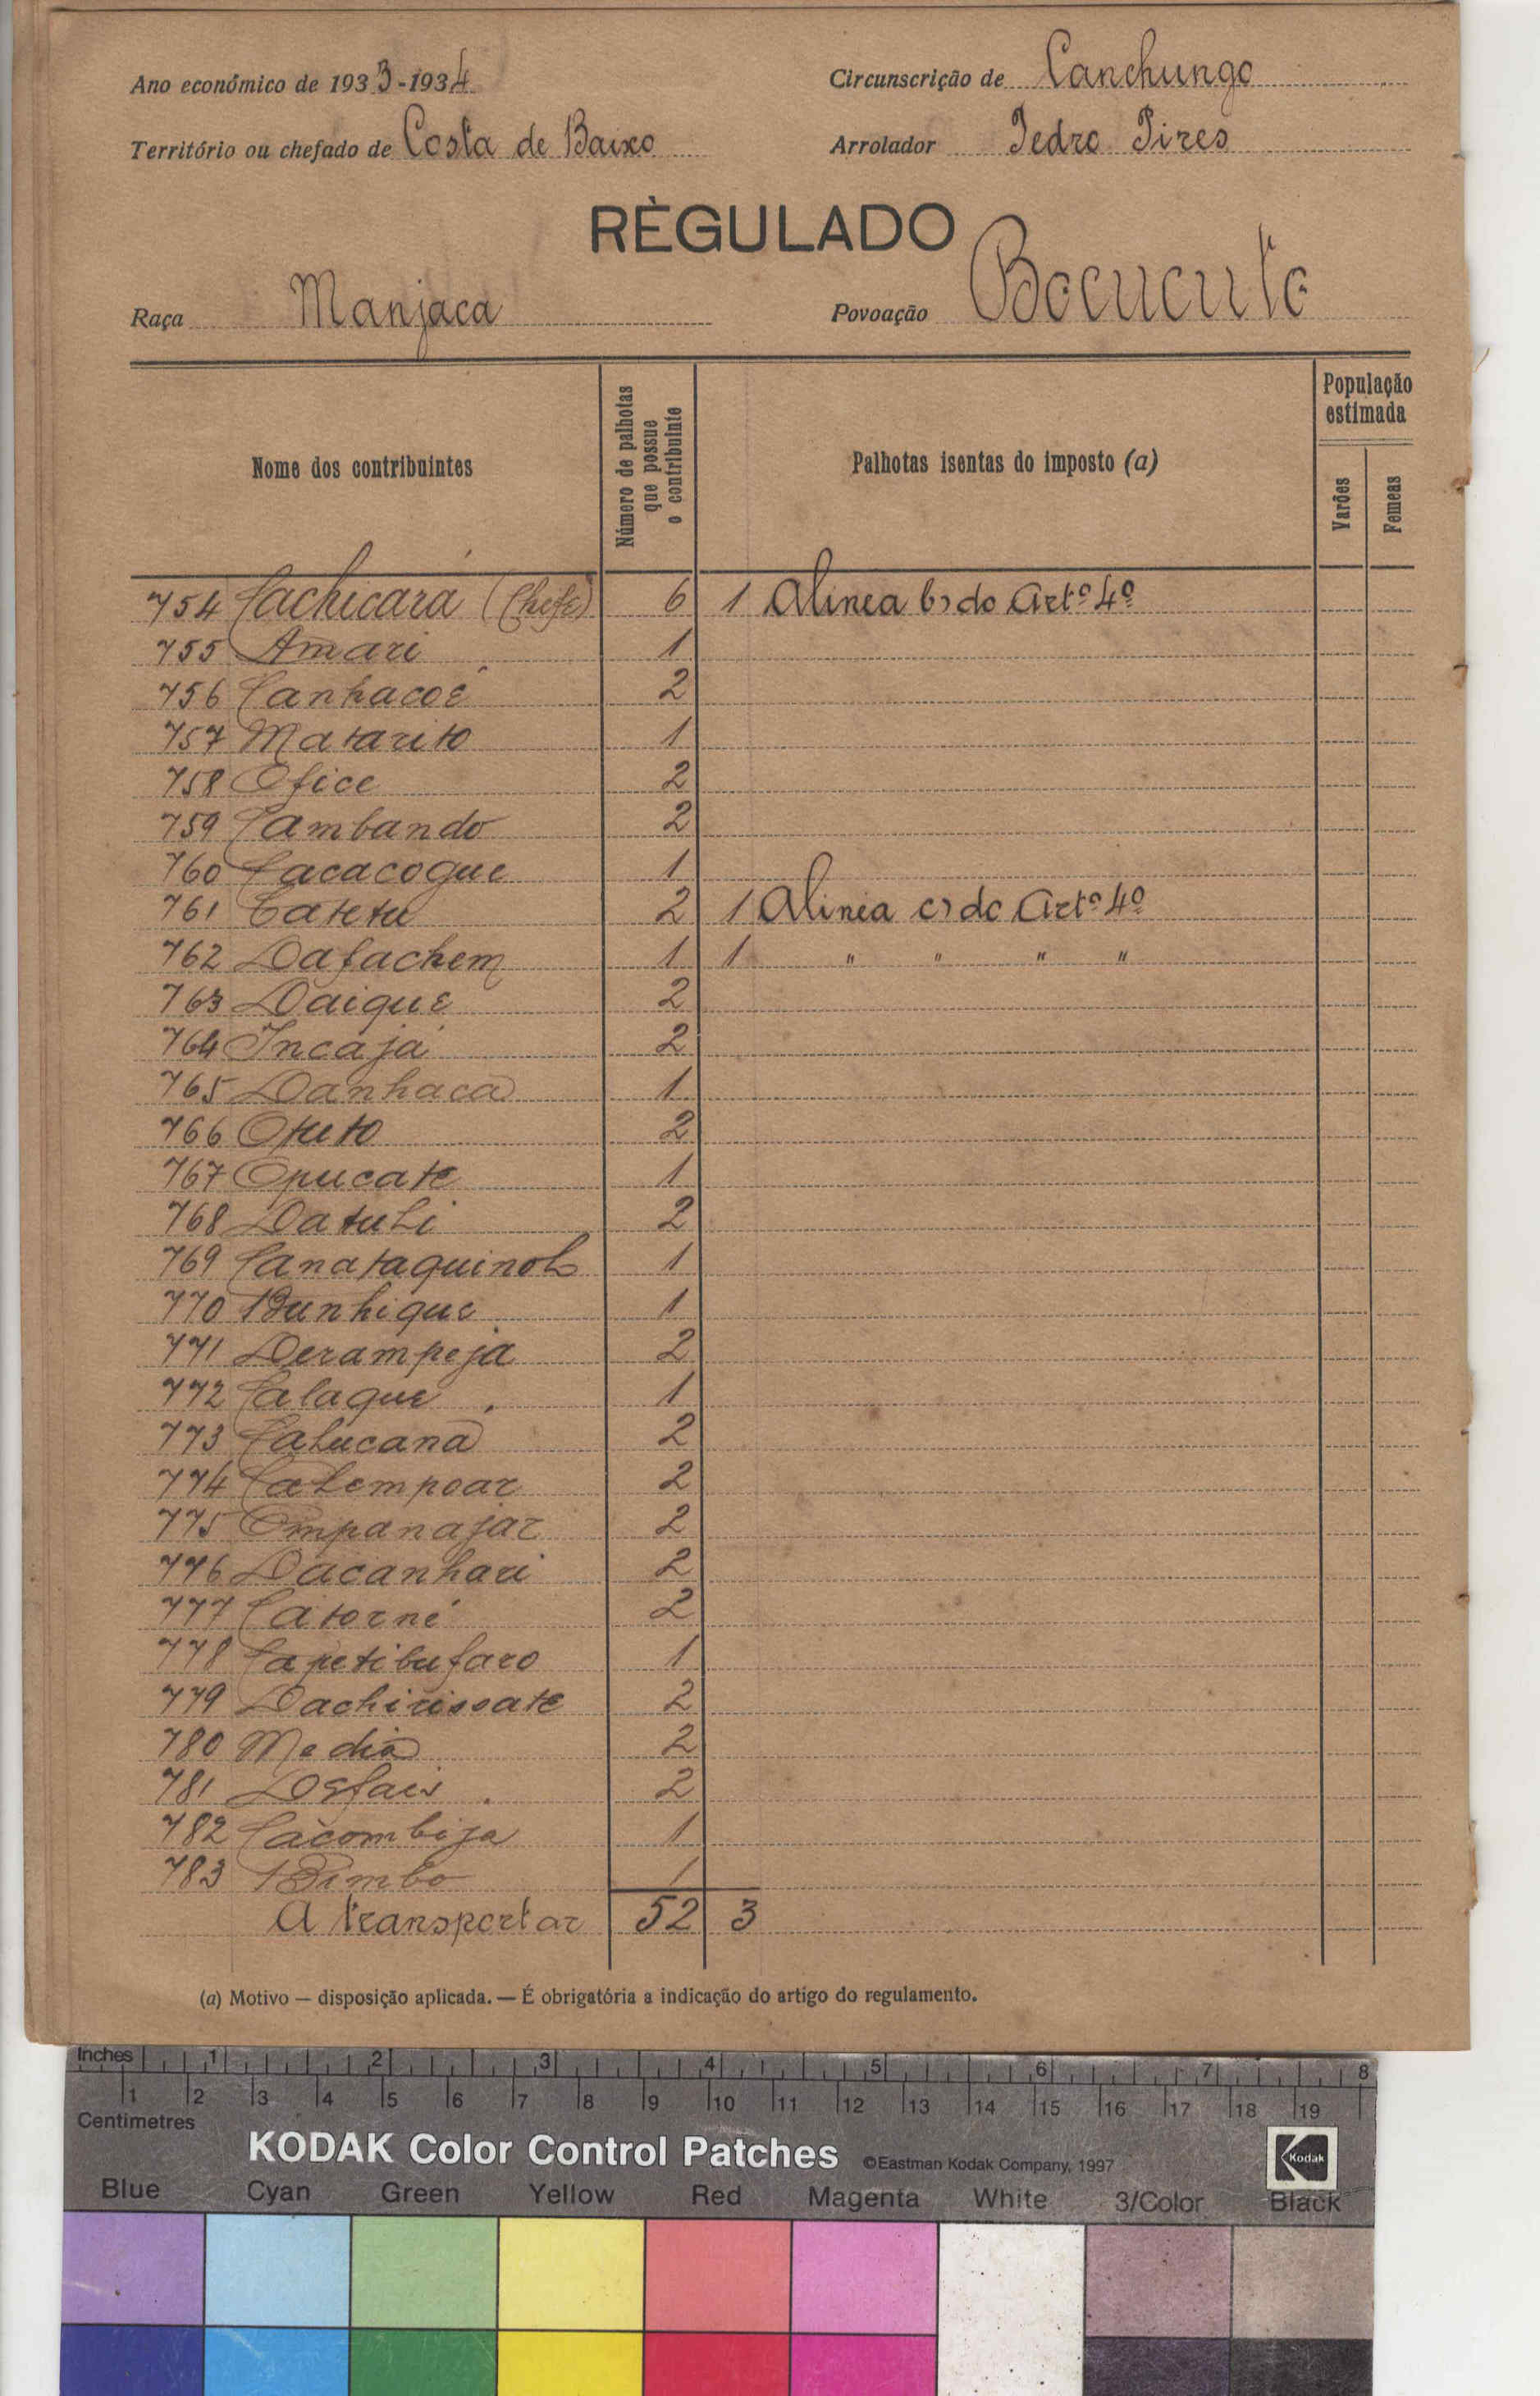 Ano económico de 1933-1934 Circunscrição de Canchungo
Território ou chefado de Costa de Baixo Arrolador Pedro Pires
RÈGULADO
Raça Manjaca Povoação Bocucuto
Nome dos contribuintes Número de palhotas que possue o contribuinte Palhotas isentas do imposto (a) População estimada Varões Femeas
754 Cachicará (Chefe) 6 1 Alinea b) do Artº 4º
755 Amari 1
756 Canhacoé 2
757 Matarito 1
758 Ofice 2
759 Cambando 2
760 Cacacogue 1
761 Catetu 2 1 Alinea c) do Artº 4º
762 Dafachem 1 1 " " " "
763 Daique 2
764 Incajá 2
765 Danhaca 1
766 Otuto 2
767 Opucate 1
768 Datuli 2
769 Canataquinol 1
770 Bunhique 1
771 Derampeja 2
772 Calaque 1
773 Calucana 2
774 Calempoar 2
775 Ompanajar 2
776 Dacanhari 2
777 Catorné 2
778 Capetibufaro 1
779 Dachirissate 2
780 Media 2
781 Defais 2
782 Cacombija 1
783 Bimbo 1
A transportar 52 3
(a) Motivo — disposição aplicada. — É obrigatória a indicação do artigo do regulamento.
Inches 1 2 3 4 5 6 7 8
1 2 3 4 5 6 7 8 9 10 11 12 13 14 15 16 17 18 19
Centimetres
KODAK Color Control Patches ©Eastman Kodak Company, 1997 Kodak
Blue Cyan Green Yellow Red Magenta White 3/Color Black